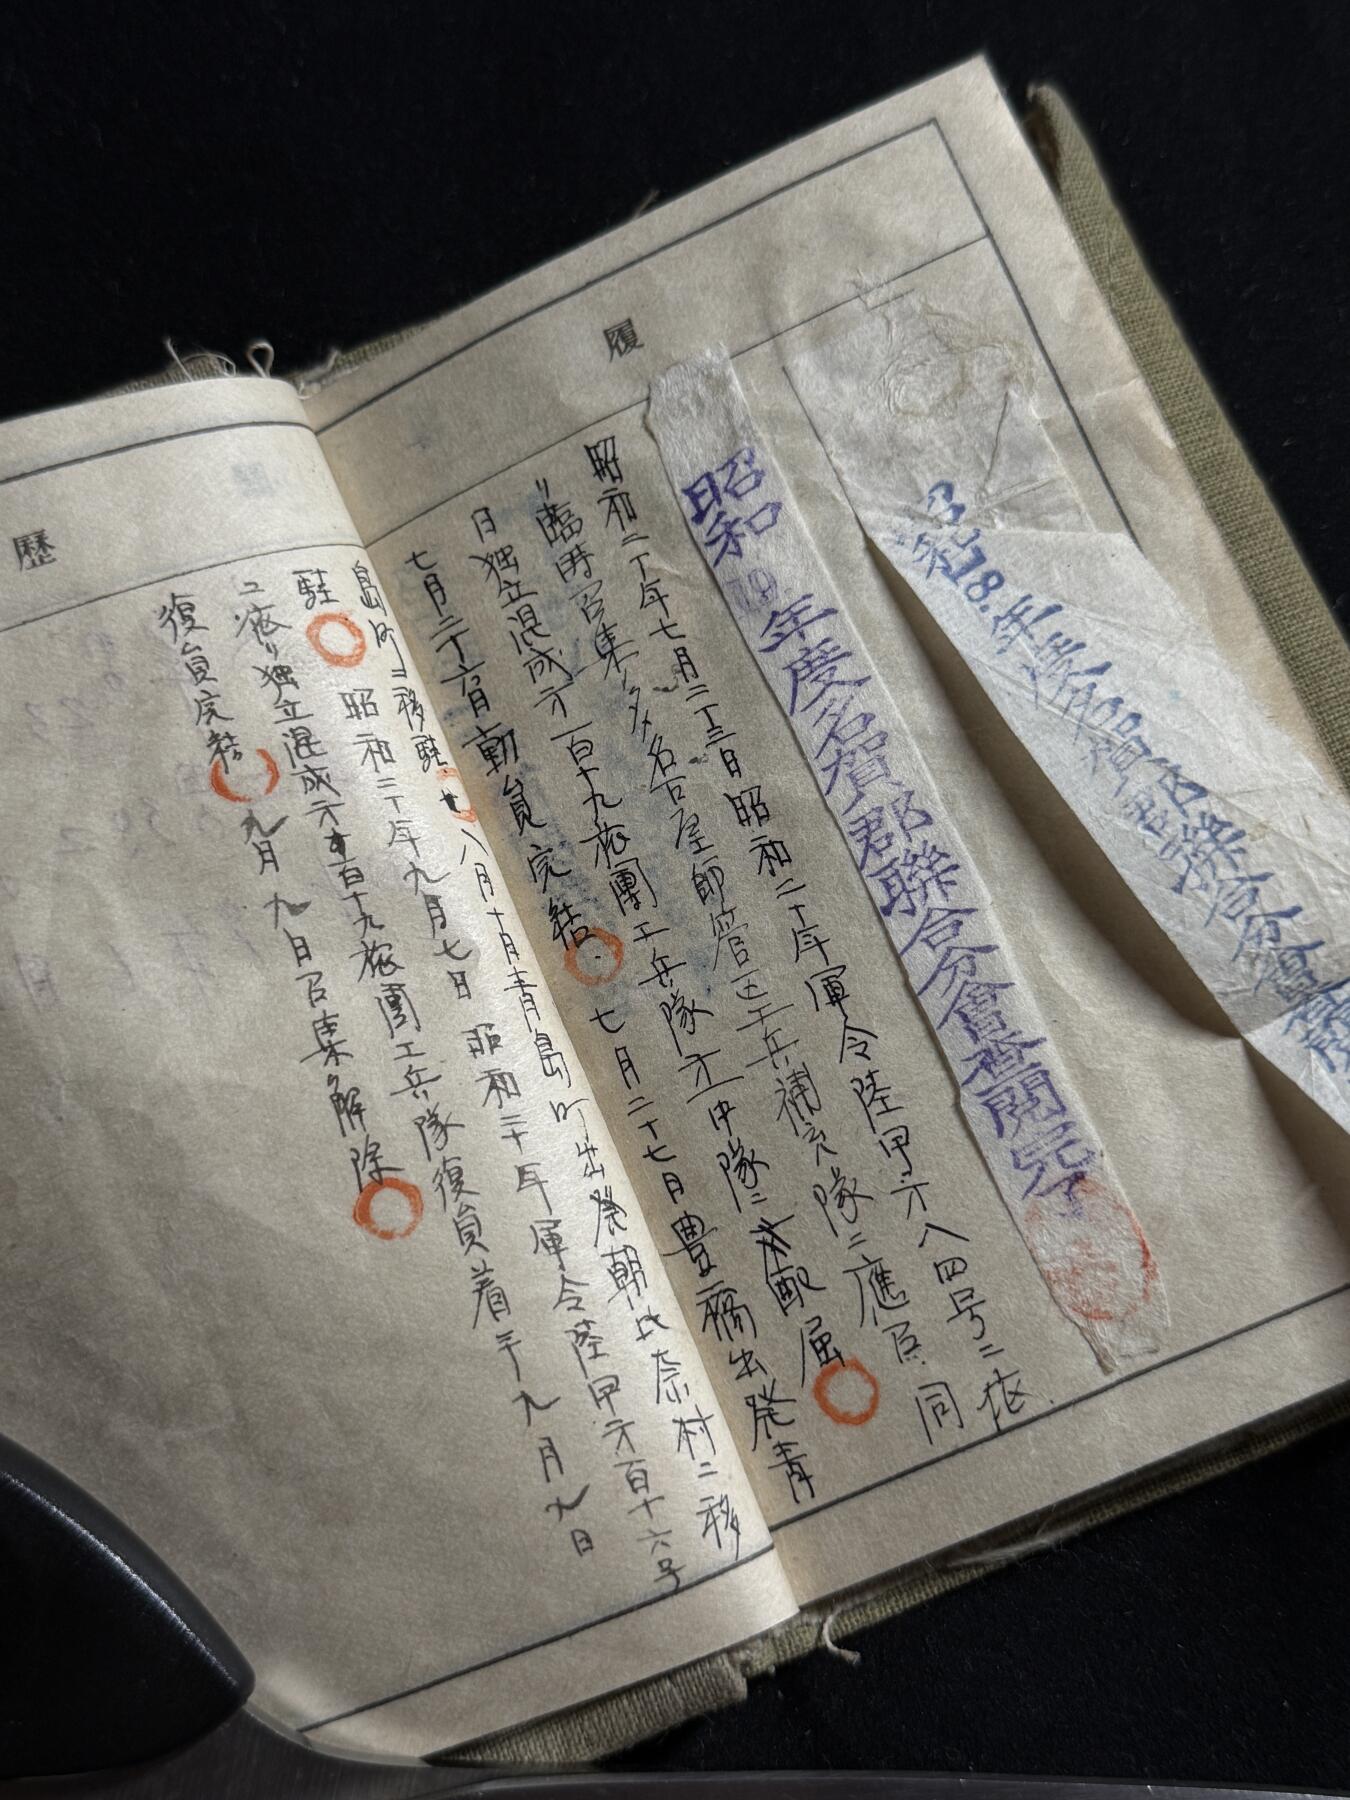 履歴
昭和18.年度名賀郡聯合分會
昭和19年度名賀郡聯合分會査閲完了
昭和二十年七月二十三日昭和二十年軍令陸甲オ八四号ニ依
リ臨時召集ノタメ名古屋師管区工兵補充隊ニ應召同
日独立混成オ百十九旅團工兵隊オ一中隊ニ配属
七月二十六日動員完結七月二十七日豊橋出発青
島町ニ移駐八月十日青島町出発朝比奈村ニ移
駐昭和二十年九月七日昭和二十年軍令陸甲オ百十六号
ニ依リ独立混成オ百十九旅團工兵隊復員着手九月九日
復員完結九月九日召集解除